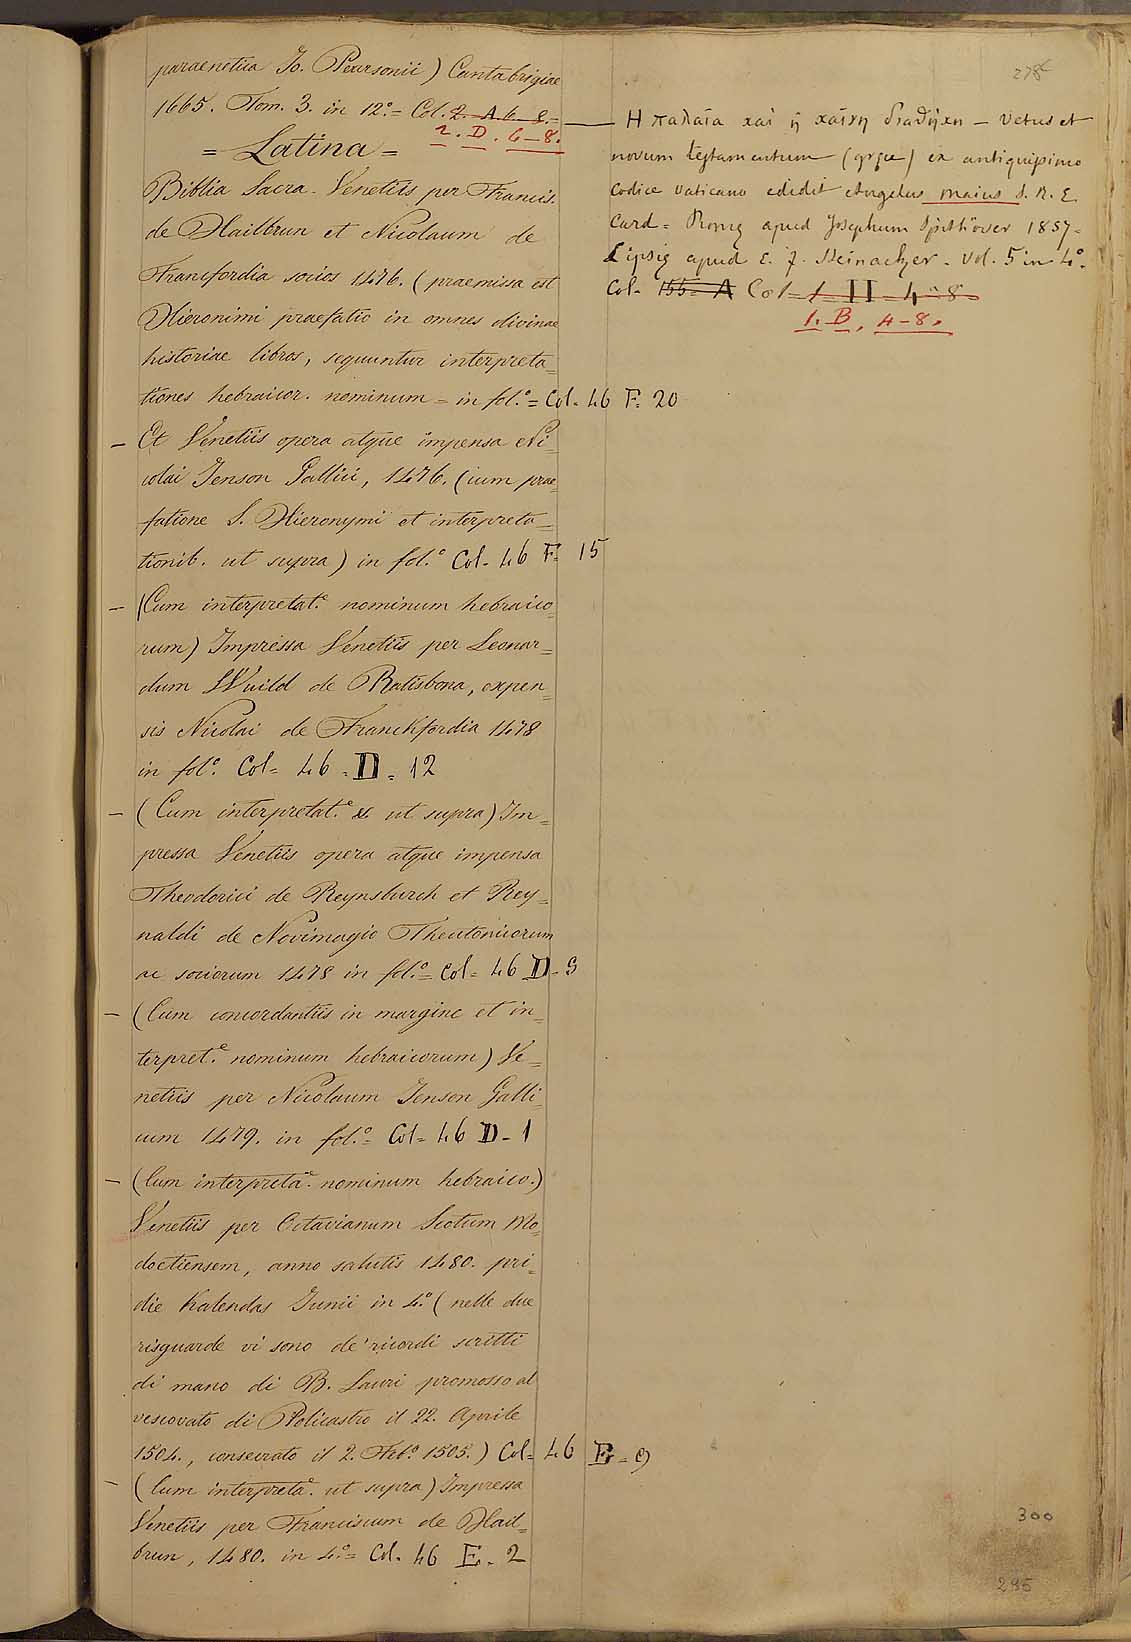 paraenetica Jo. Pearsonii) Cantabrigiae
1665. Tom. 3. in 12.º = Col. 2. A. 6-8. =
2. D. 6-8.
= Latina =
Biblia Sacra. Venetiis per Francis.
de Hailbrun et Nicolaum de
Francfordia socios 1476. (praemissa est
Hieronimi praefatio in omnes divinae
historiae libros, sequuntur interpreta=
tiones hebraicor. nominum = in fol.º = Col. 46 F. 20
— Et Venetiis opera atque impensa Ni=
colai Jenson Gallici, 1476. (cum prae=
fatione S. Hieronymi et interpreta=
tionib. ut supra) in fol.º Col. 46 F. 15
— (Cum interpretat.e nominum hebraico=
rum) Impressa Venetiis per Leonar=
dum Wuild de Ratisbona, expen=
sis Nicolai de Franckfordia 1478
in fol.º Col= 46. D. 12
— (Cum interpretat.e &. ut supra) Im=
pressa Venetiis opera atque impensa
Theodorici de Reynsburch et Rey=
naldi de Novimagio Theutonicorum
ac sociorum 1478 in fol.º = Col= 46 D. 9
— (Cum concordantiis in margine et in=
terpret.e nominum hebraicorum) Ve=
netiis per Nicolaum Jenson Galli=
cum 1479. in fol.º = Col= 46 D. 1
— (Cum interpreta.e nominum hebraico.)
Venetiis per Octavianum Scotum Mo=
doetiensem, anno salutis 1480. pri=
die Kalendas Junii in 4.º (nelle due
risguarde vi sono de' ricordi scritti
di mano di B. Lauri promosso al
vescovato di Policastro il 22. Aprile
1504., consecrato il 2. Feb.º 1505.) Col= 46 E. 9
— (Cum interpreta.e ut supra) Impressa
Venetiis per Franciscum de Hail=
brun, 1480. in 4.º = Col. 46 E. 2
278
— Η παλαία χαὶ ἡ χαίνη διαθήχη — Vetus et
novum testamentum (gręce) ex antiquissimo
Codice Vaticano edidit Angelus Maius S. R. E.
Card = Romę apud Josephum Spithöver 1857=
Lipsię apud E. F. Steinacker. Vol. 5 in 4.º
Col. 155= A Col= 1. II. 4-8.
1. B. 4-8.
300
295